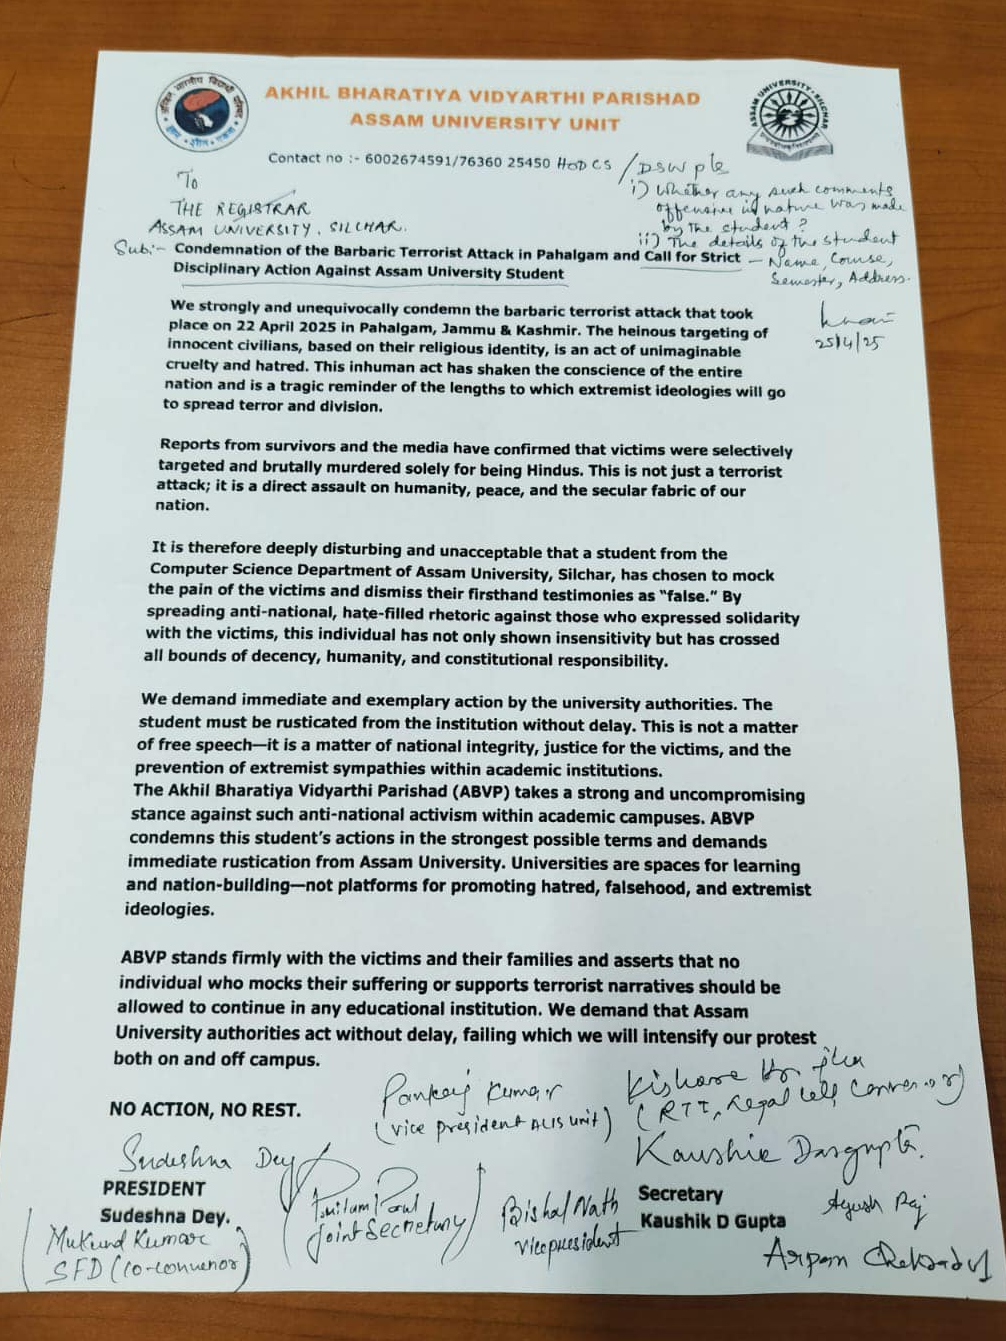 अखिल भारतीय विद्यार्थी परिषद
ज्ञान शील एकता
AKHIL BHARATIYA VIDYARTHI PARISHAD
ASSAM UNIVERSITY UNIT
ASSAM UNIVERSITY SILCHAR
Contact no :- 6002674591/76360 25450
HOD CS / DSW plz
i) Whether any such comments
offensive in nature was made
by the student ?
ii) The details of the student
— Name, Course,
Semester, Address.
25/4/25
To
THE REGISTRAR
ASSAM UNIVERSITY, SILCHAR.
Sub:- Condemnation of the Barbaric Terrorist Attack in Pahalgam and Call for Strict
Disciplinary Action Against Assam University Student
We strongly and unequivocally condemn the barbaric terrorist attack that took
place on 22 April 2025 in Pahalgam, Jammu & Kashmir. The heinous targeting of
innocent civilians, based on their religious identity, is an act of unimaginable
cruelty and hatred. This inhuman act has shaken the conscience of the entire
nation and is a tragic reminder of the lengths to which extremist ideologies will go
to spread terror and division.
Reports from survivors and the media have confirmed that victims were selectively
targeted and brutally murdered solely for being Hindus. This is not just a terrorist
attack; it is a direct assault on humanity, peace, and the secular fabric of our
nation.
It is therefore deeply disturbing and unacceptable that a student from the
Computer Science Department of Assam University, Silchar, has chosen to mock
the pain of the victims and dismiss their firsthand testimonies as “false.” By
spreading anti-national, hate-filled rhetoric against those who expressed solidarity
with the victims, this individual has not only shown insensitivity but has crossed
all bounds of decency, humanity, and constitutional responsibility.
We demand immediate and exemplary action by the university authorities. The
student must be rusticated from the institution without delay. This is not a matter
of free speech—it is a matter of national integrity, justice for the victims, and the
prevention of extremist sympathies within academic institutions.
The Akhil Bharatiya Vidyarthi Parishad (ABVP) takes a strong and uncompromising
stance against such anti-national activism within academic campuses. ABVP
condemns this student’s actions in the strongest possible terms and demands
immediate rustication from Assam University. Universities are spaces for learning
and nation-building—not platforms for promoting hatred, falsehood, and extremist
ideologies.
ABVP stands firmly with the victims and their families and asserts that no
individual who mocks their suffering or supports terrorist narratives should be
allowed to continue in any educational institution. We demand that Assam
University authorities act without delay, failing which we will intensify our protest
both on and off campus.
NO ACTION, NO REST.
Pankaj Kumar
(vice president AUS unit)
Kishore Kr. Jha
(RTI, Legal Cell Convenor)
Sudeshna Dey
PRESIDENT
Sudeshna Dey.
Mukund Kumar
SFD (co-convenor)
Paul
Joint Secretary
Bishal Nath
Vice president
Kaushik Dasgupta.
Secretary
Kaushik D Gupta
Ayush Raj
Arpan